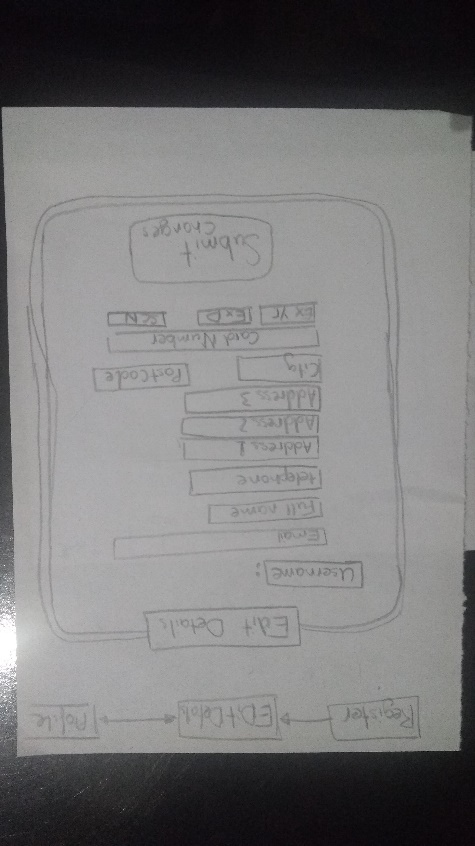 Register Edit Details Profile
Edit Details
Username:
Email
Full name
telephone
Address 1
Address 2
Address 3
City Postcode
Card Number
Ex Yr ExD SCN
Submit
Changes